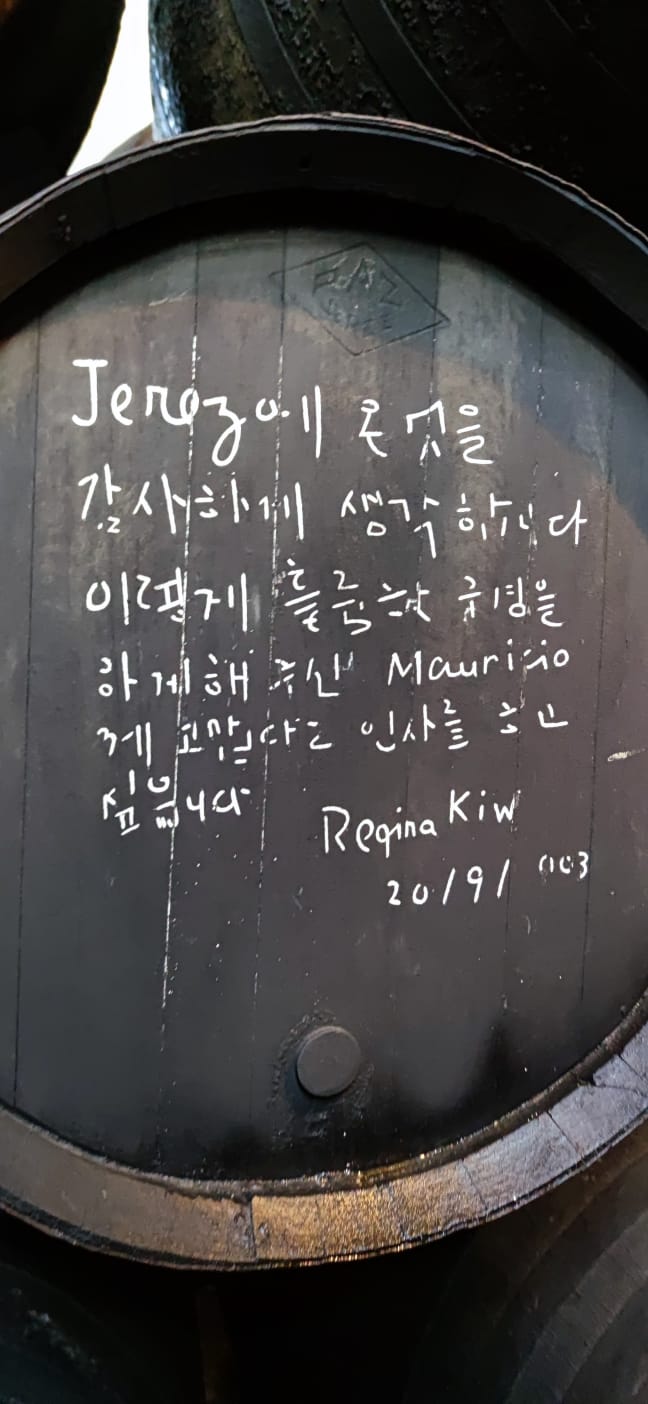 Jerez에 온것을
감사하게 생각합니다
이렇게 훌륭한 구경을
하게해 주신 Mauricio
께 고맙다는 인사를 하고
싶습니다
Regina Kim
20/9/003